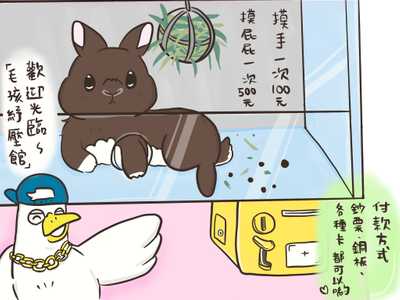 摸手一次100元
摸屁屁一次500元
歡迎光臨~
「毛孩紓壓館」
付款方式
鈔票、銅板、
各種卡都可以喲♡